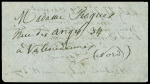 Madame Roques
Rue des anges 34
à Valenciennes
(Nord)